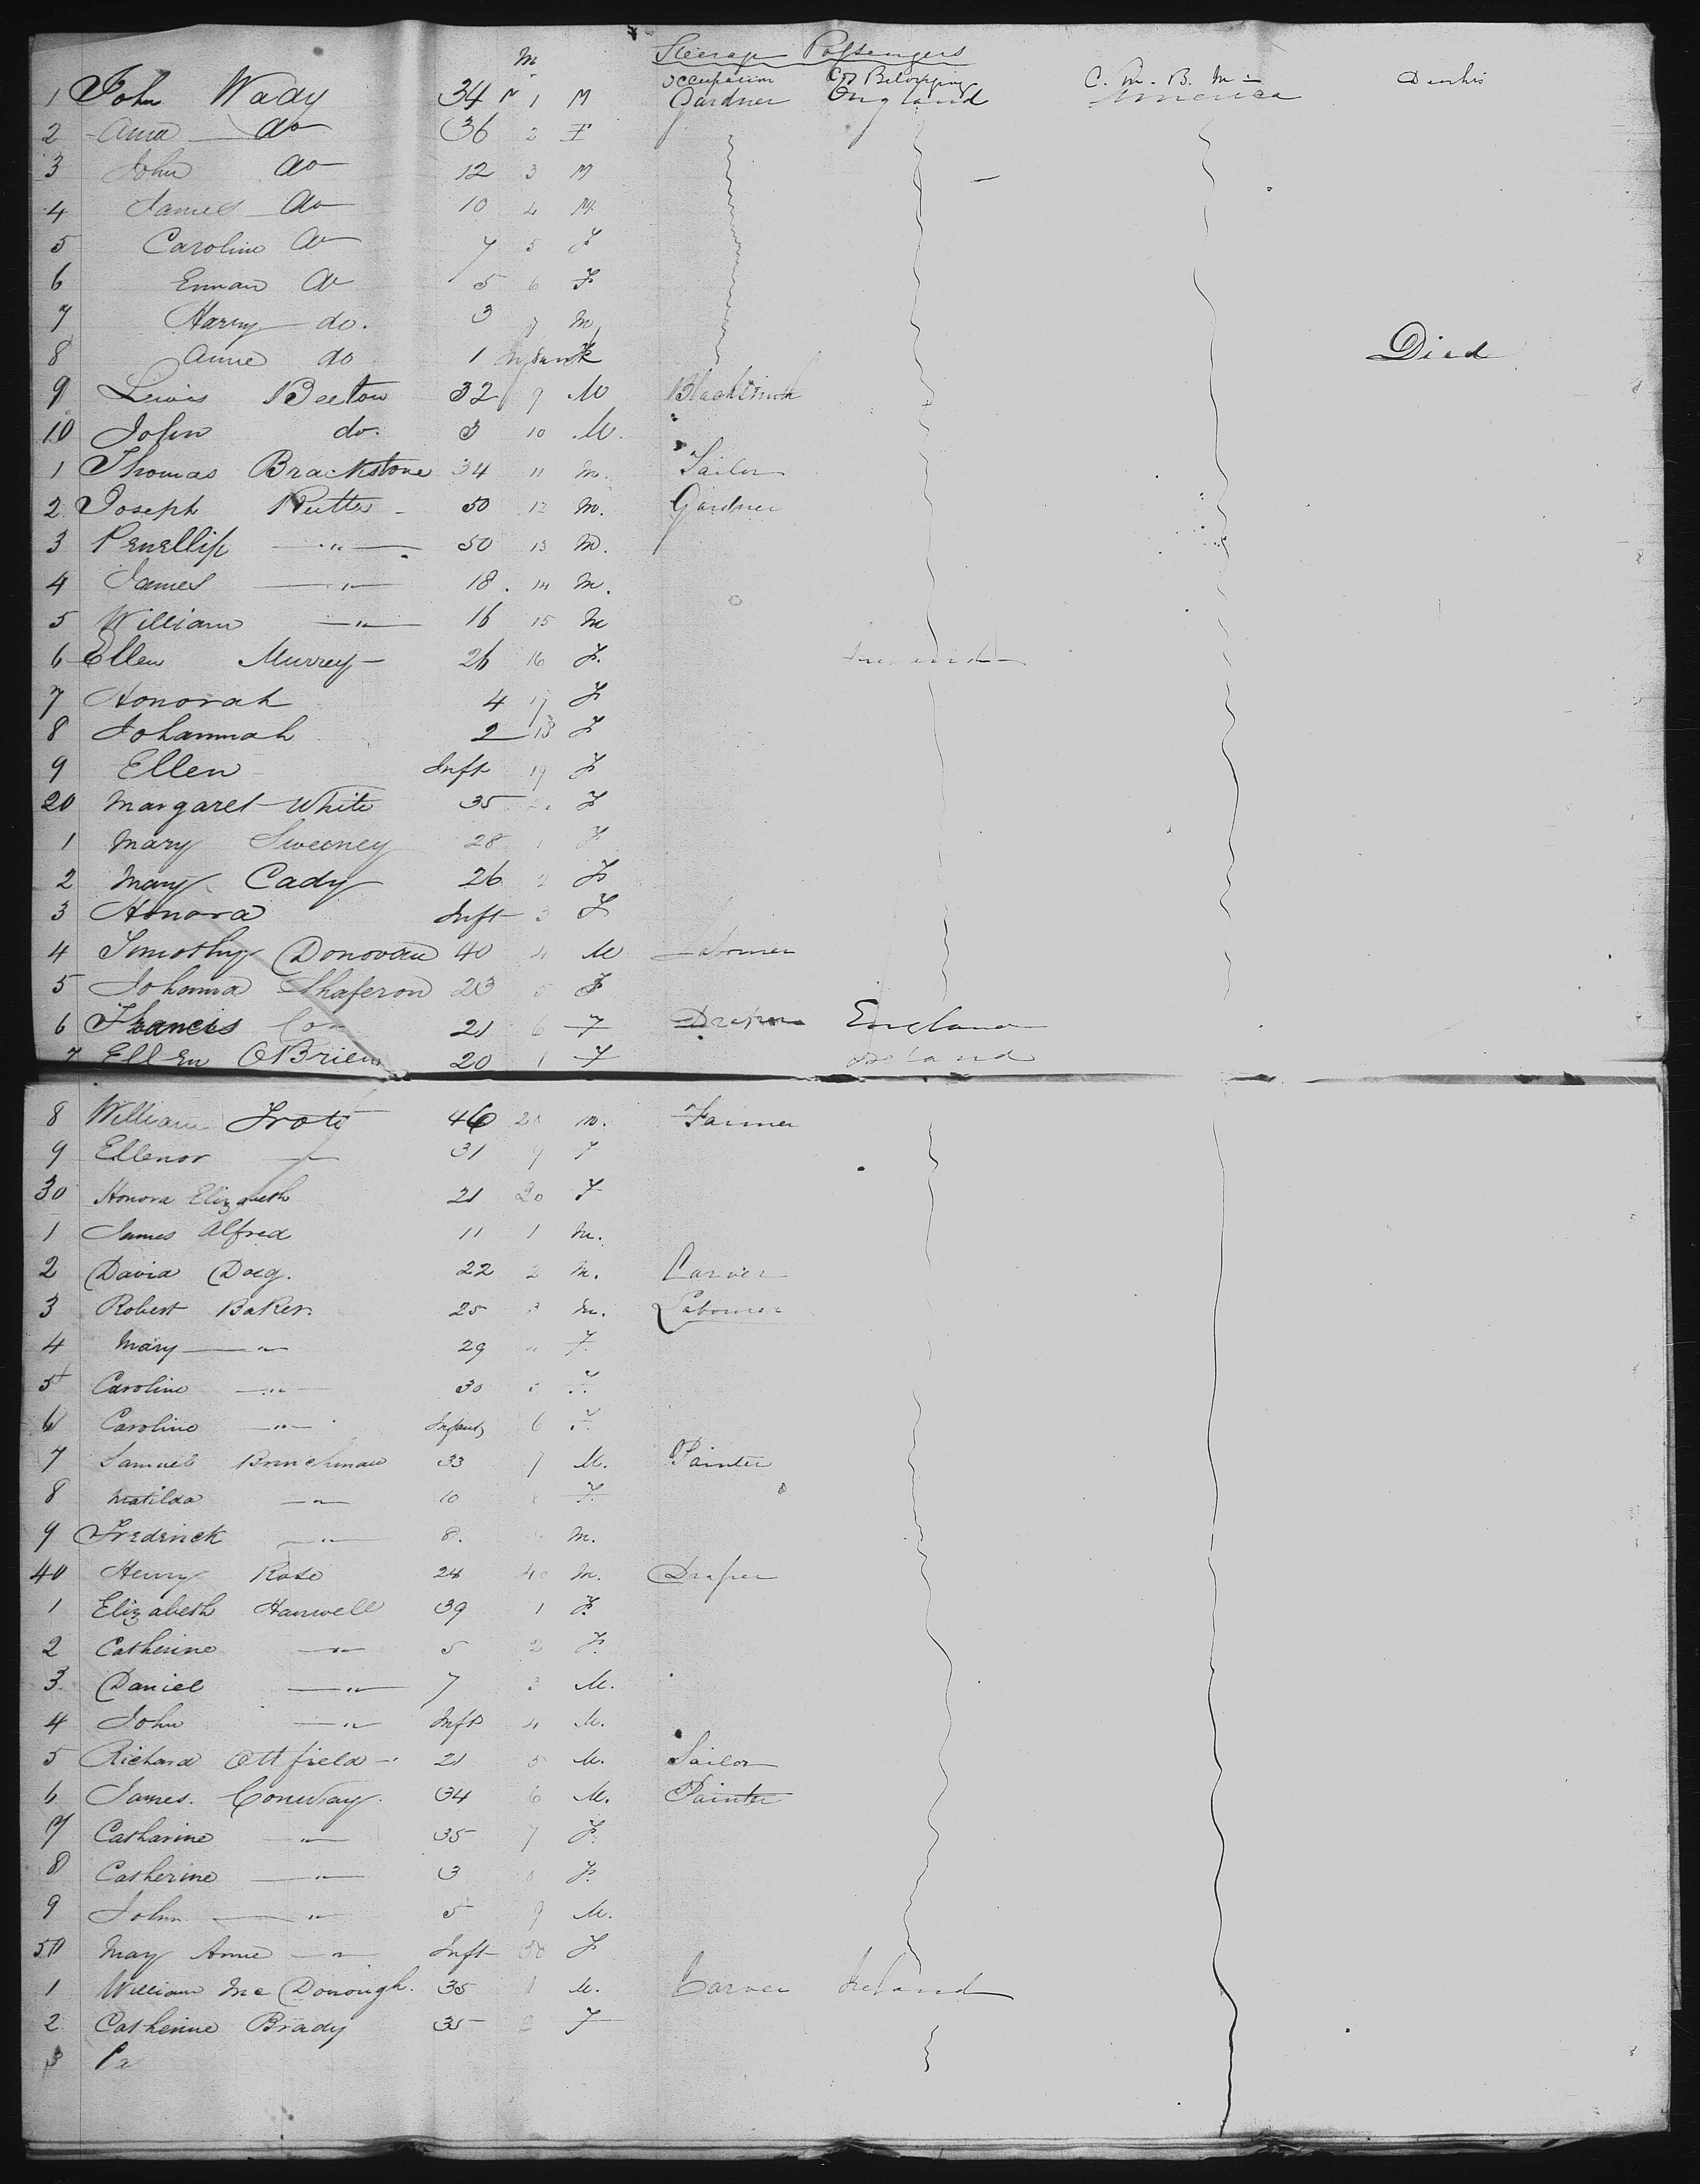 Steerage Passengers
M
Occupation Co Belonging C. M. B. M Deaths
1 John Wady 34 M 1 M Gardner England America
2 Ann do 36 2 F
3 John do 12 3 M
4 James do 10 4 M
5 Caroline do 7 5 F
6 Emman do 5 6 F
7 Harry do. 3 7 M
8 Anne do 1 Infant F Died
9 Lewis Beeton 32 9 M Blacksmith
10 John do. 3 10 M.
1 Thomas Brackstone 34 11 M. Tailor
2 Joseph Rutter 50 12 M. Gardner
3 Penellip " 50 13 M.
4 James " 18. 14 M.
5 William " 16 15 M
6 Ellen Murrey 26 16 F. Ireland
7 Honorah 4 17 F
8 Johannah 2 18 F
9 Ellen Inft 19 F
20 Margaret White 35 F
1 Mary Sweeney 28 1 F
2 Mary Cady 26 2 F
3 Honora Inft 3 F
4 Timothy Donovan 40 4 M Labourer
5 Johanna Shaferon 23 5 F
6 Francis 21 6 F England
7 Ellen OBrien 20 F Ireland
8 William Trott 46 28 M. Farmer
9 Ellenor 31 9 F
30 Honora Elizabeth 21 30 F
1 James Alfred 11 1 M.
2 David Doeg. 22 2 M. Carver
3 Robert Baker. 25 3 M. Labourer
4 Mary " 29 F.
5 Caroline " 30 F.
6 Caroline " Infant 6 F.
7 Samuel Brinchman 33 7 M. Painter
8 Matilda " 10 8 F.
9 Fredrick " 8. M.
40 Henry Rose 24 40 M. Draper
1 Elizabeth Hanwell 39 1 F.
2 Catherine " 5 2 F.
3 Daniel " 7 3 M.
4 John " Inft 4 M.
5 Richard Ottfield 21 5 M. Sailor
6 James. Conway. 34 6 M. Painter
7 Catharine " 35 7 F.
8 Catherine " 3 8 F.
9 John " 5 9 M.
50 May Anne " Inft 50 F
1 William Mc Donough. 35 1 M. Carver Ireland
2 Catherine Brady 35 2 F
3 Pa